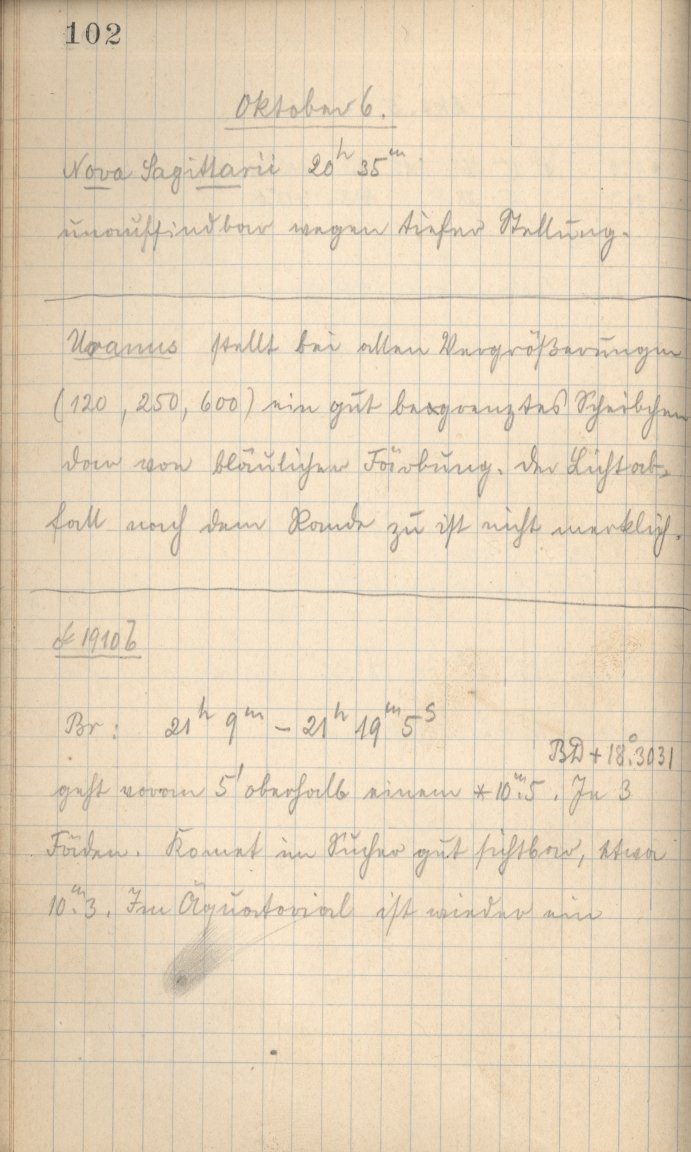 102
Oktober 6.
Nova Sagittarii 20h 35m.
unauffindbar wegen tiefer Stellung.
Uranus stellt bei allen Vergrößerungen
(120, 250, 600) ein gut begrenztes Scheibchen
dar von bläulicher Färbung. Der Lichtab-
fall nach dem Rande zu ist nicht merklich.
☄ 1910b
Br: 21h 9m – 21h 19m 5s
BD + 18°.3031
geht voran 5' oberhalb einem * 10m.5. Je 3
Fäden. Komet im Sucher gut sichtbar, etwa
10m.3. Im Äquatorial ist wieder ein